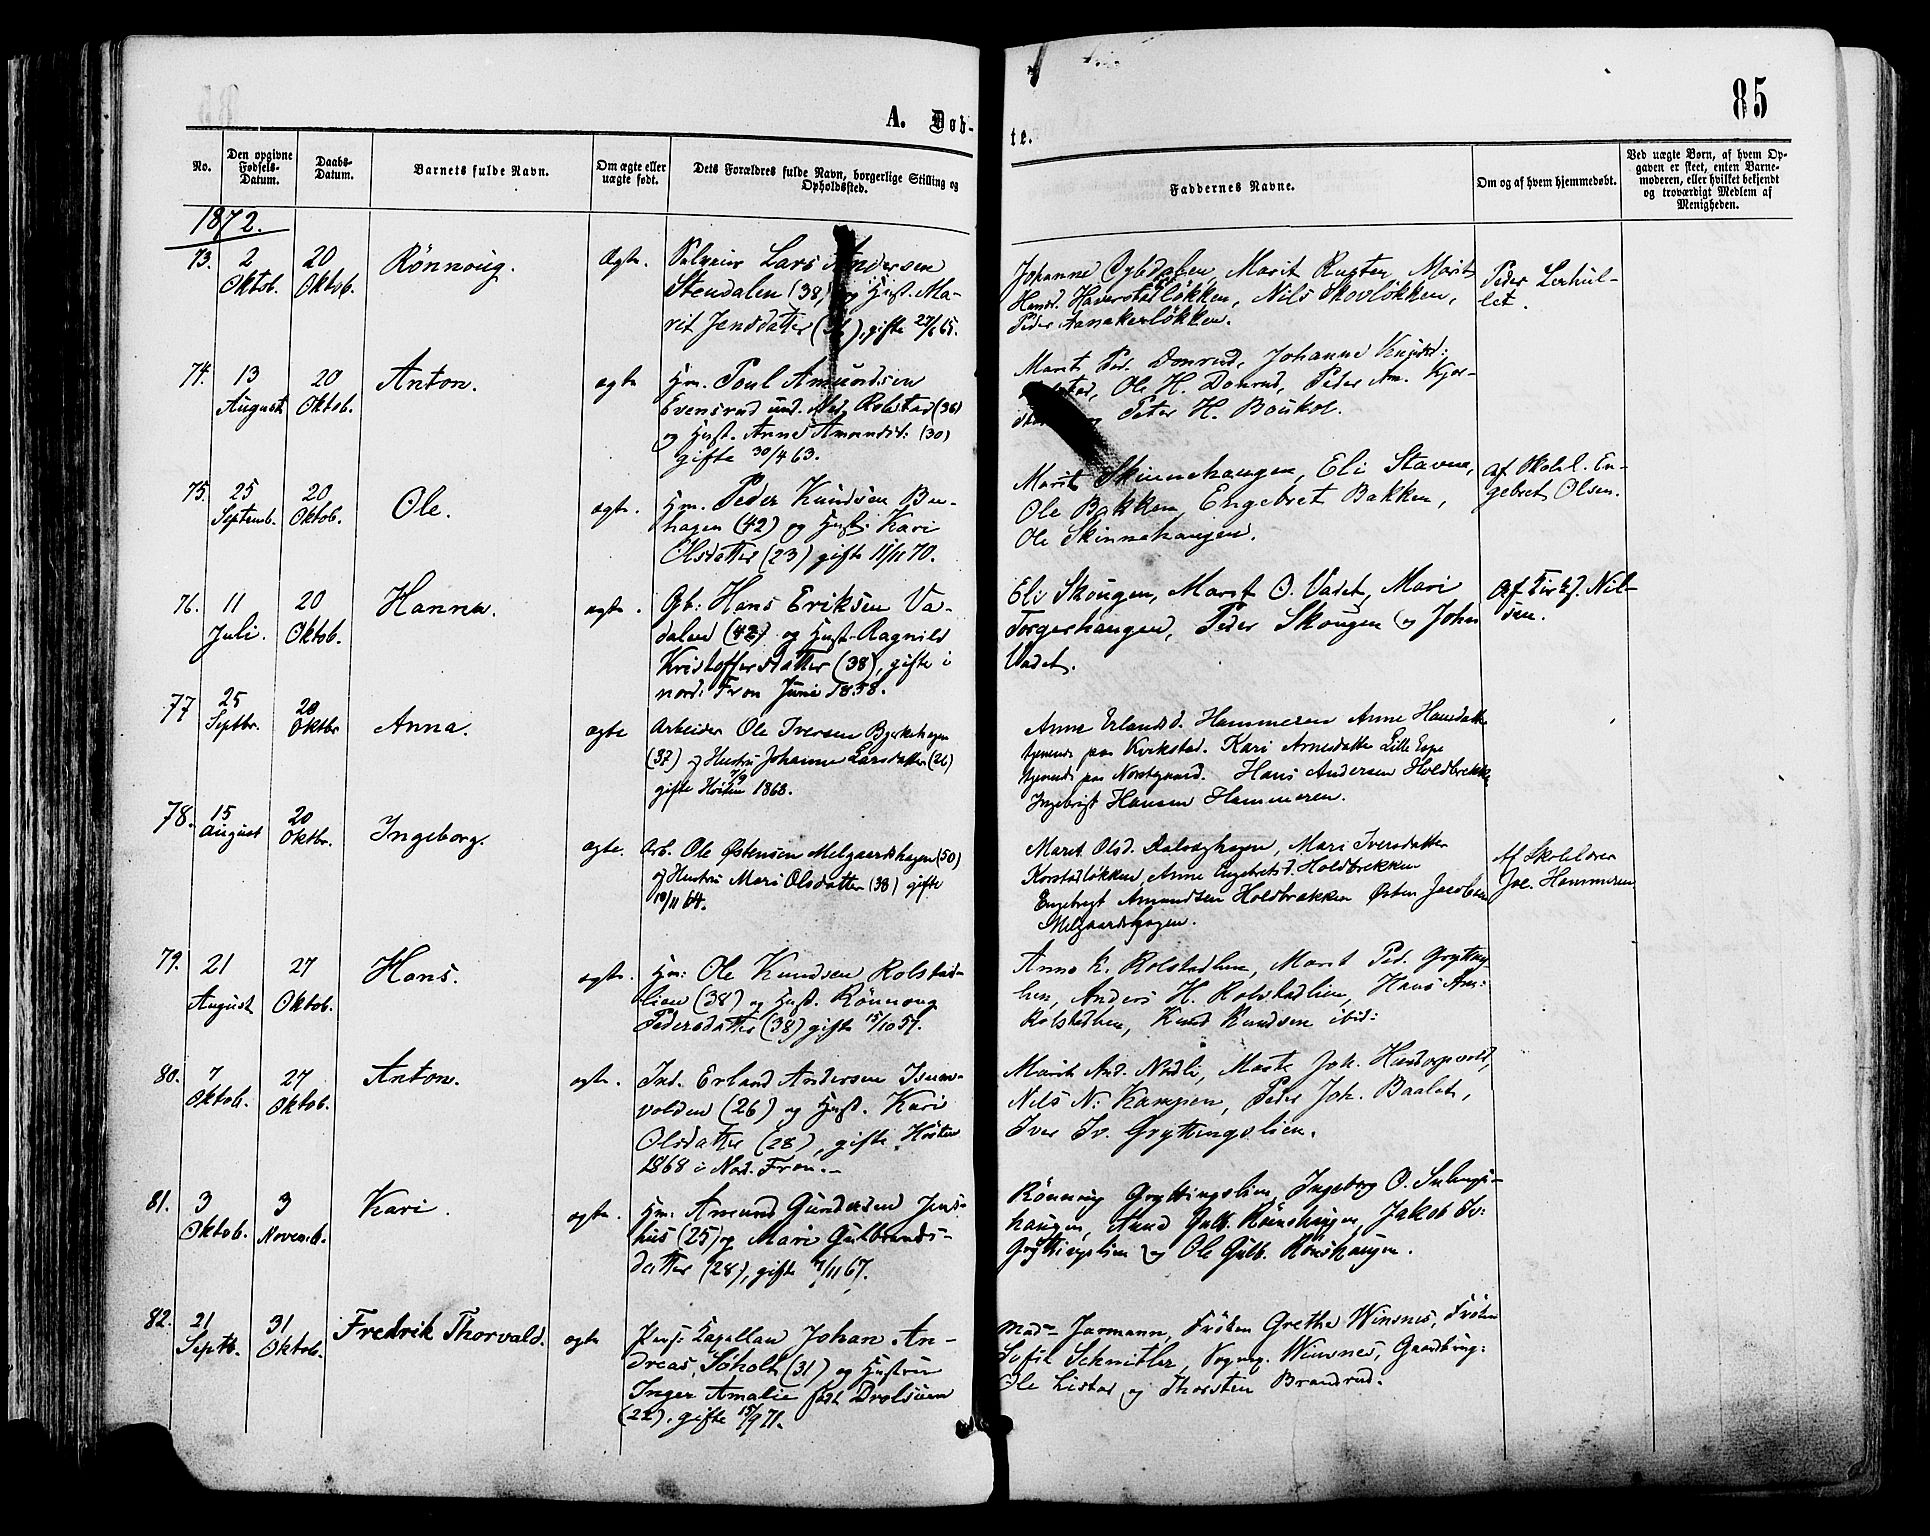 85
A. Døb-
te.
No.
Den opgivne Fødsels-Datum.
Daabs-Datum.
Barnets fulde Navn.
Om ægte eller uægte født.
Dets Forældres fulde Navn, borgerlige Stilling og Opholdssted.
Faddernes Navne.
Om og af hvem hjemmedøbt.
Ved uægte Børn, af hvem Op-
gaven er skeet, enten Barne-
moderen, eller hvilket bekjendt
og troværdigt Medlem af
Menigheden.
1872.
73. 2 Oktob. 20 Oktob. Rönnoug. Ægte.
Lars Andersen
Stendalen (38) og Hust. Ma-
rit Jensdatter, gifte
Johanne Marit Rusten, Marit
Hansd. Haverstadløkken, Nils Skovløkken,
Peder Aanakerløkken.
Peder Lerhul-
let.
74. 13 August 20 Oktob. Anton. ægte
Hm. Poul Amundsen
Evensrud und. Rolstad (36)
og Hust. Anne Amundsd: (30)
gifte 30/4 63.
Marit Ped. Domrud, Johanne
Ole H. Domrud, Peder Am.
Peter H. Boukol.
75. 25 Septemb. 20 Oktob. Ole. ægte.
Hm. Peder Knudsen
hagen (42) og Hust: Kari
Olsdatter (23) gifte 11/11 70.
Marit Skinnehaugen, Eli Stavne,
Ole Bakken, Engebret Bakken,
Ole Skinnehaugen.
af Skolel. En-
gebret Olsen.
76. 11 Juli. 20 Oktob. Hanna. ægte.
Gb: Hans Eriksen Va-
dalen (42) og Hust. Ragnild
Kristoffersdatter (38), gifte i
nord: Fron Juni 1858.
Eli Skougen, Marit O. Vadet, Mari
Torgerhaugen, Peder Skougen og John
Vadet.
af Nil-
sen.
77 25 Septbr. 20 Oktbr Anna. ægte
Arbeider Ole Iversen Bjerkehagen
(37) og Hustru Johanne Larsdatter (26)
gifte Høsten 1868.
Anne Erlandsd. Hammeren Anne Hansdatter
tjenende paa Kvikstad. Kari Arnesdatter Lille Espe
tjenende paa Nordgaard. Hans Andersen Holdbrekken
Ingebrigt Hansen Hammeren.
78. 15 august 20 Oktbr. Ingeborg. ægte.
Arb. Ole Østensen Melgaardshagen (50)
og Hustru Mari Olsdatter (38) gifte
10/11 64.
Marit Olsd. Mari Iversdatter
Korstadløkken, Anne Engebretsd. Holdbrekken
Engebregt Amundsen Holdbrækken Østen Jacobsen
Melgaardshagen.
Af Skolelærer
Joe. Hammeren
79. 21 August 27 Oktob. Hans. ægte.
Hm: Ole Knudsen Rolstad-
lien (38) og Hust. Rönnoug
Pedersdatter (38) gifte 15/10 57.
Anne K. Rolstadlien, Marit Ped. Grytting-
lien, Anders H. Rolstadlien, Hans Am:
Rolstadlien, Knud Knudsen ibid:
80. 7 Oktob. 27 Oktob. Anton. ægte.
Ind. Erland Andersen Isum-
volden (26) og Hust. Kari
Olsdatter (28), gifte Høsten
1868 i Nord. Fron.-
Marit And. Nordli, Marte Joh. Hundorpvold,
Nils N: Kampen, Peder Joh. Baalet,
Iver Iv. Gryttingslien.
81. 3 Oktob. 3 Novemb. Kari. ægte.
Hm: Amund Gundersen Jens-
hus (25) og Mari Gulbrands-
datter (28), gifte 7/11 67.
Rönnoug Gryttingslien, Ingeborg O.
haugen, Anne Gulb. Rönshaugen, Jakob Iv:
Gryttingslien og Ole Gulb. Rönshaugen.
82. 21 Septb. 31 Oktob. Fredrik Thorvald. ægte
Pers: Kapellan Johan An-
dreas Søholt (31) og Hustru
Inger Amalie født Drolsum
(22), gifte 15/9 71.
Mad- Jarmann, Frøken Grethe Winsnes, Frøken
Sofie Schnitler, Winsnes, Gaardbrug:
Ole Listad og Thorsten Brandrud.